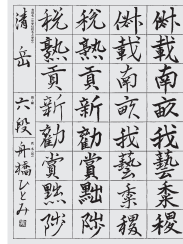 俶載南畝我藝黍稷
俶載南畝我藝黍稷
税熟貢新勸賞黜陟
税熟貢新勸賞黜陟
清岳 六段 舟橋ひとみ